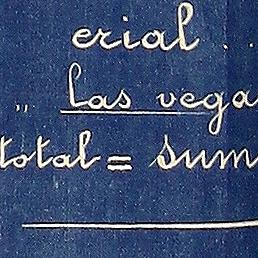 erial . .
,, las vega
total = sum